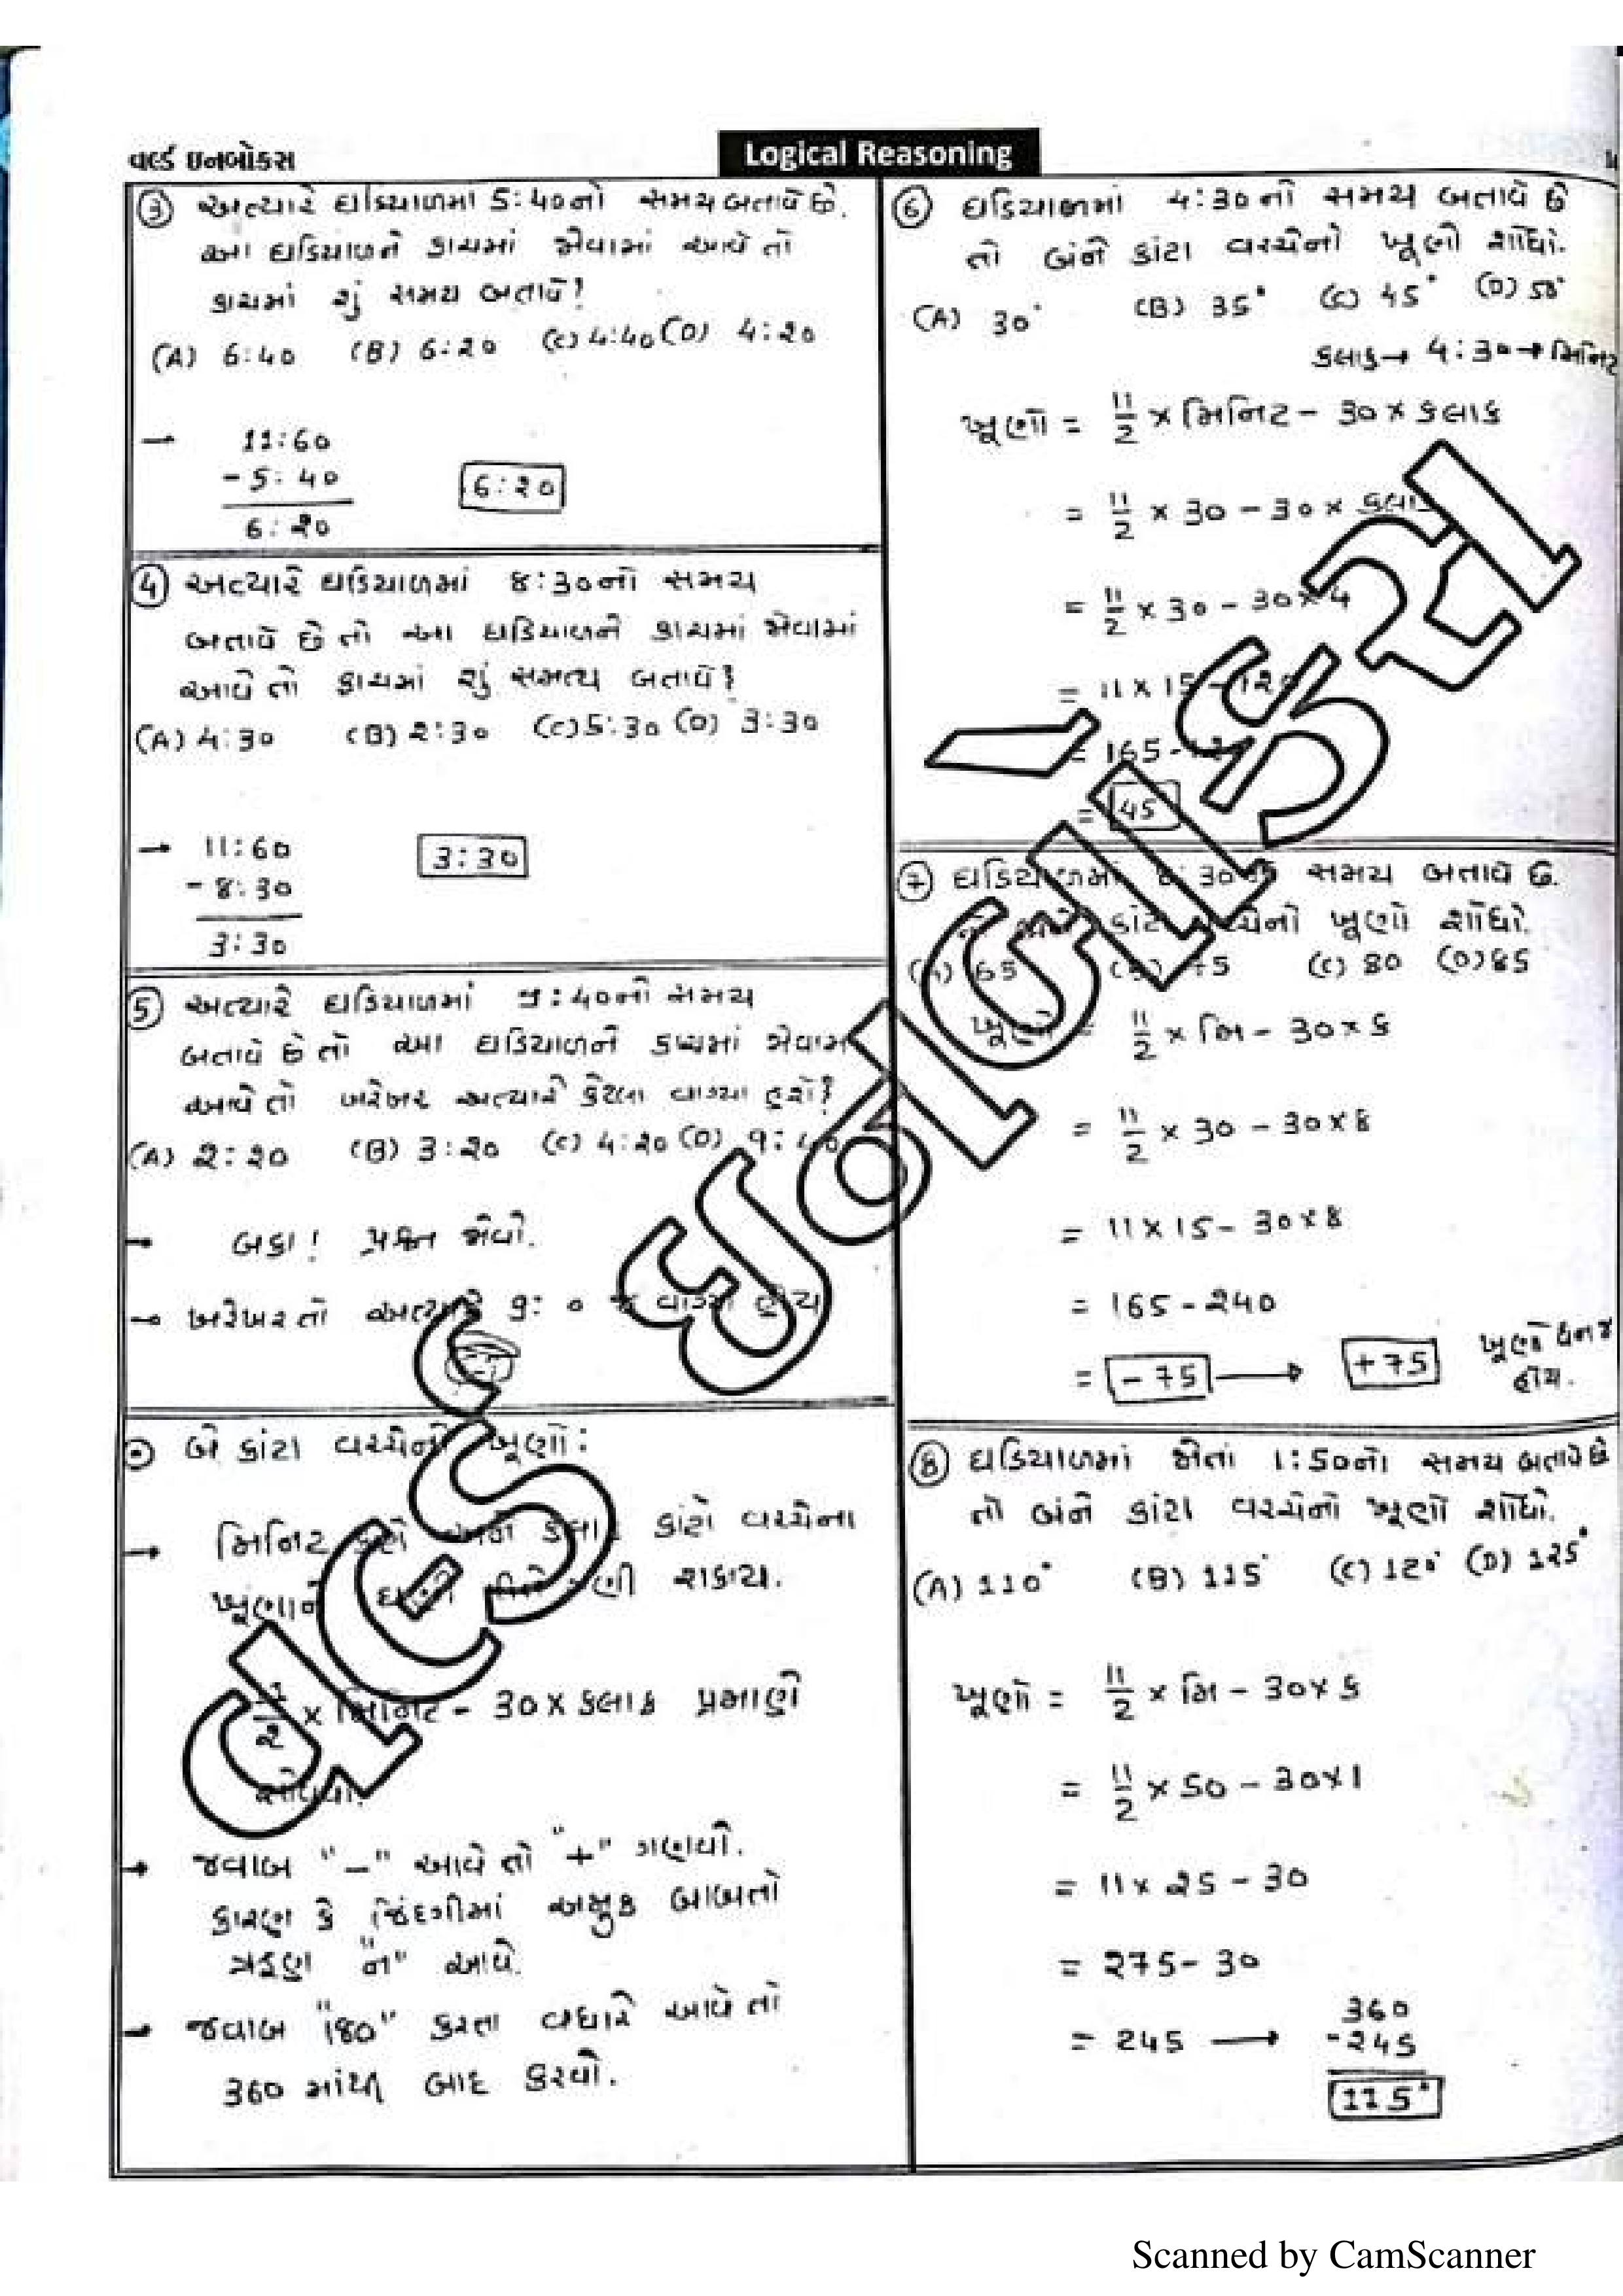 વર્લ્ડ ઇનબોક્સ
Logical Reasoning
③ અત્યારે ઘડિયાળમાં 5:40નો સમય બતાવે છે.
આ ઘડિયાળને કાચમાં જોવામાં આવે તો
કાચમાં શું સમય બતાવે?
(A) 6:40 (B) 6:20 (C) 4:40 (D) 4:20
→ 11:60
- 5:40
6:20
6:20
④ અત્યારે ઘડિયાળમાં 8:30નો સમય
બતાવે છે તો આ ઘડિયાળને કાચમાં જોવામાં
આવે તો કાચમાં શું સમય બતાવે?
(A) 4:30 (B) 2:30 (C) 5:30 (D) 3:30
→ 11:60
- 8:30
3:30
3:30
⑤ અત્યારે ઘડિયાળમાં 9:40નો સમય
બતાવે છે તો આ ઘડિયાળને કાચમાં જોવામાં
આવે તો ખરેખર અત્યારે કેટલા વાગ્યા હશે?
(A) 2:20 (B) 3:20 (C) 4:20 (D) 9:40
→ બકા! પ્રશ્ન જોવો.
→ ખરેખર તો અત્યારે વાગ્યા હોય
બે કાંટા વચ્ચેનો ખૂણો:
→ મિનિટ કાંટો અને કલાક કાંટો વચ્ચેના
ખૂણાને ગણી શકાય.
2 × મિનિટ - 30 × કલાક પ્રમાણે
→ જવાબ "-" આવે તો "+" ગણવો.
કારણ કે જિંદગીમાં અમુક બાબતો
ગ્રહણ "ન" આવે.
→ જવાબ "180" કરતા વધારે આવે તો
360 માંથી બાદ કરવો.
⑥ ઘડિયાળમાં 4:30નો સમય બતાવે છે
તો બંને કાંટા વચ્ચેનો ખૂણો શોધો.
(A) 30° (B) 35° (C) 45° (D) 50°
કલાક → 4:30 → મિનિટ
ખૂણો = 11/2 × મિનિટ - 30 × કલાક
= 11/2 × 30 - 30 × કલાક
= 11/2 × 30 - 30 × 4
= 11 × 15 - 120
= 165 - 120
= 45
⑦ ઘડિયાળમાં 8:30નો સમય બતાવે છે.
તો બંને કાંટા વચ્ચેનો ખૂણો શોધો.
(A) 65 (B) 75 (C) 80 (D) 85
ખૂણો = 11/2 × મિ - 30 × ક
= 11/2 × 30 - 30 × 8
= 11 × 15 - 30 × 8
= 165 - 240
= - 75 → + 75 ખૂણો ધન જ
હોય.
⑧ ઘડિયાળમાં જોતાં 1:50નો સમય બતાવે છે
તો બંને કાંટા વચ્ચેનો ખૂણો શોધો.
(A) 110° (B) 115° (C) 120° (D) 125°
ખૂણો = 11/2 × મિ - 30 × ક
= 11/2 × 50 - 30 × 1
= 11 × 25 - 30
= 275 - 30
= 245 → 360
- 245
115°
Scanned by CamScanner